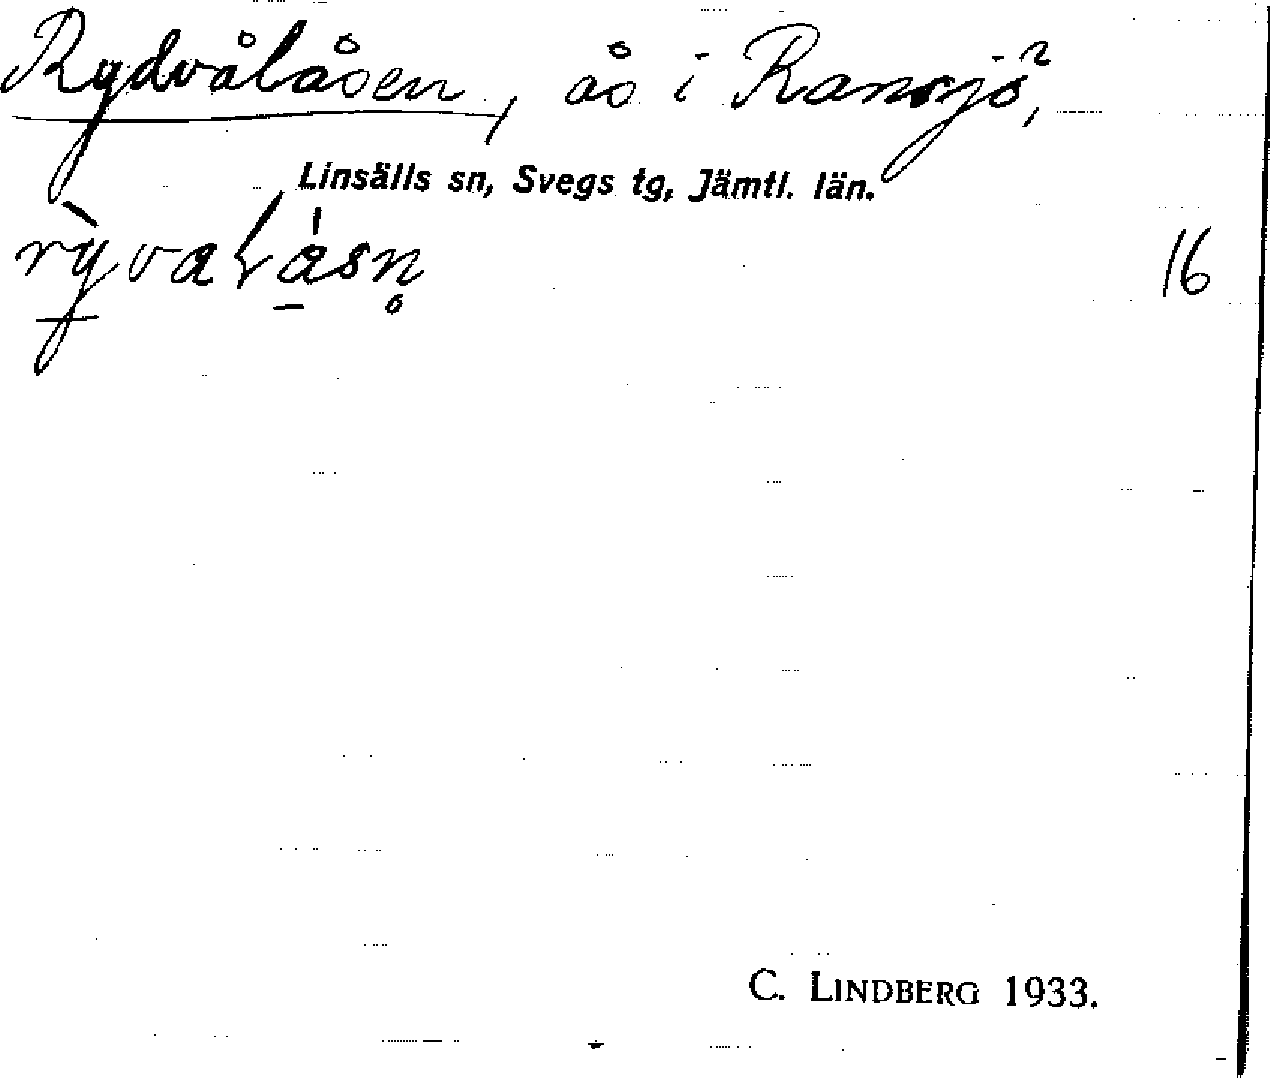 Rydvålåsen, ås i Ransjö,²
Linsälls sn, Svegs tg, Jämtl. län.
16
C. LINDBERG 1933.